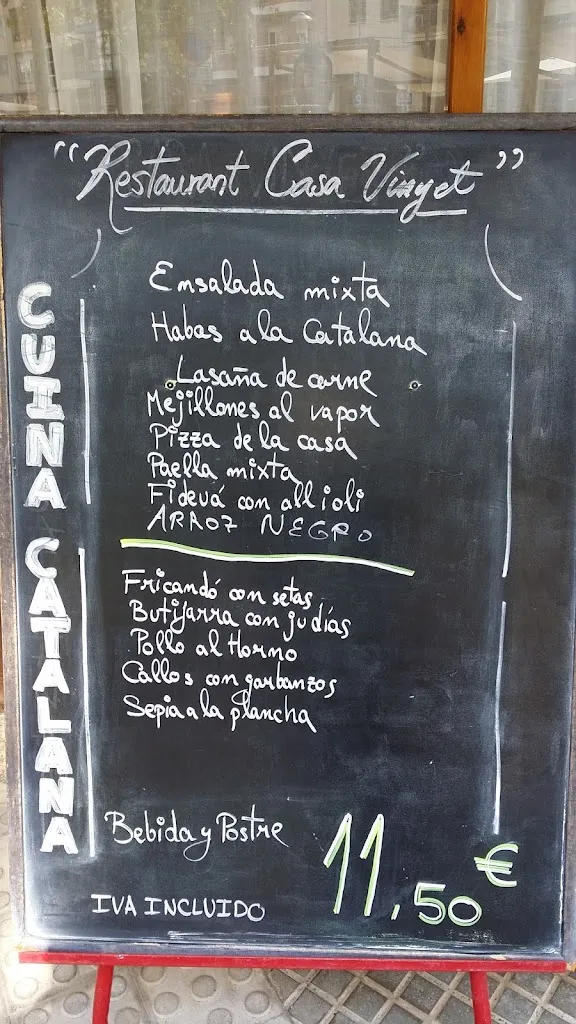 "Restaurant Casa Vinyet"
CUINA CATALANA
Ensalada mixta
Habas a la Catalana
Lasaña de carne
Mejillones al vapor
Pizza de la casa
Paella mixta
Fidevá con all i oli
ARROZ NEGRO
Fricandó con setas
Butifarra con judías
Pollo al Horno
Callos con garbanzos
Sepia a la plancha
Bebida y Postre
11,50 €
IVA INCLUIDO